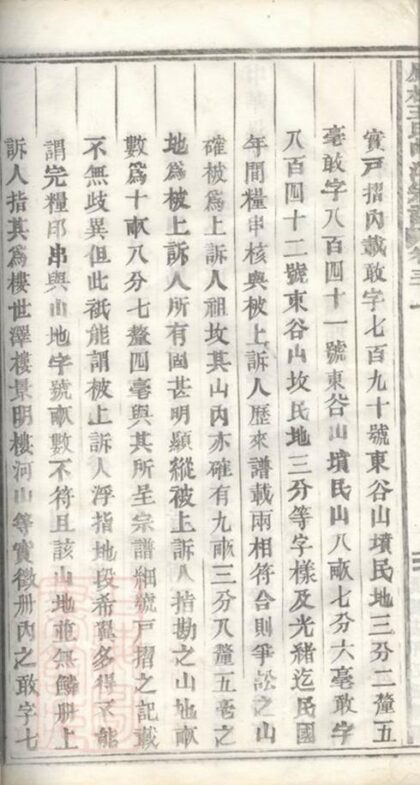 實戸摺內載敢字七百九十號東谷山墳民地三分二釐五
毫敢字八百四十一號東谷山墳民山八畝七分六毫敢字
八百四十二號東谷山坟民地三分等字樣及光緒迄民國
年間糧串核與被上訴人歷來譜載兩相符合則爭訟之山
確被爲上訴人祖坟其山內亦確有九畝三分八釐五毫之
地爲被上訴人所有固甚明顯縱被上訴人指勘之山地畝
數爲十畝八分七釐四毫與其所呈宗譜細號戸摺之記載
不無歧異但此祇能謂被上訴人浮指地段希冀多得不能
謂完糧印串與山地字號畝數不符且該山地並無鱗册上
訴人指其爲樓世澤樓景明樓河山等實徵册內之敢字七